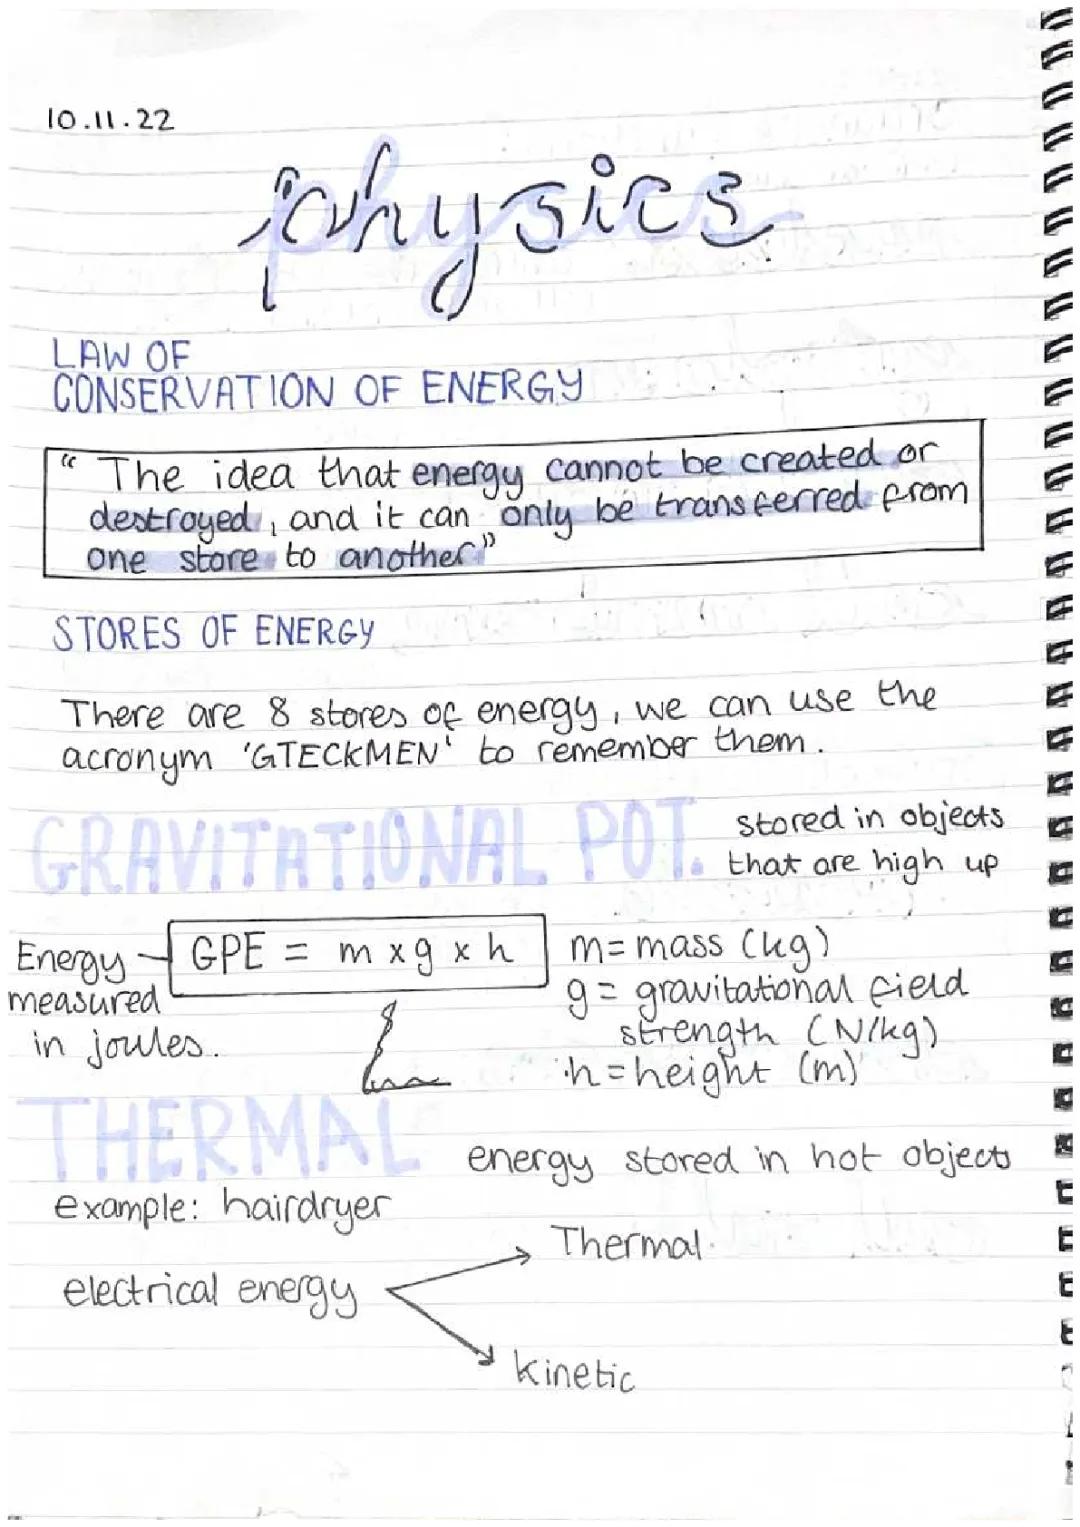 10.11.22
physics
LAW OF
CONSERVATION OF ENERGY
“ The idea that energy cannot be created or
destroyed, and it can only be transferred from
one store to another”
STORES OF ENERGY
There are 8 stores of energy, we can use the
acronym 'GTECKMEN' to remember them.
GRAVITATIONAL POT. stored in objects
that are high up
Energy
measured
in joules.
GPE = m x g x h
m = mass (kg)
g = gravitational field
strength (N/kg)
h = height (m)
THERMAL energy stored in hot objects
example: hairdryer
Thermal
electrical energy
kinetic